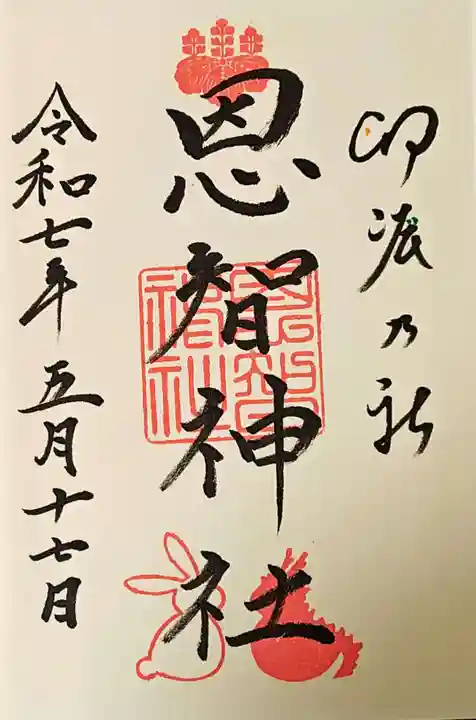 印派乃社
恩智神社
恩智神社
令和七年五月十七日